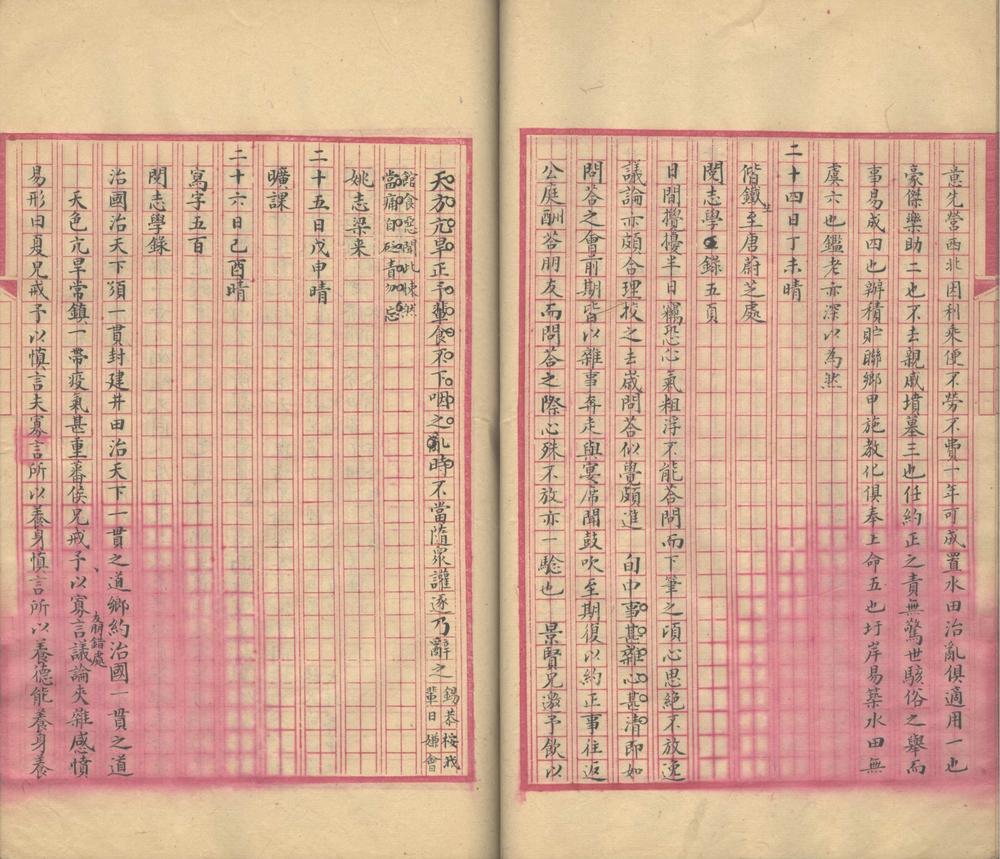 意先營西北因利乘便不勞不費一年可成置水田治亂俱適用一也
豪傑樂助二也不去親戚墳墓三也任約正之責無驚世駭俗之舉而
事易成四也辦積貯聯鄉甲施教化俱奉上命五也圩岸易築水田無
虞六也鑑老亦深以為然
二十四日丁未晴
偕鐵生至唐蔚芝處
閱志學錄五頁
日間擾擾半日竊恐心氣粗浮不能荅問而下筆之頃心思絕不放逸
議論亦頗合理挍之去歲問荅似覺頗進 旬中事甚雜心甚清即如
問荅之會前期皆以雜事奔走與宴席聞鼓吹至期復以約正事往返
公庭酬荅朋友而問荅之際心殊不放亦一驗也 景賢兄邀予飲以
天方亢旱正予輩食不下咽之亂時不當隨眾讙逐乃辭之
錫恭桉我
輩日嫌會
館食惡聞此悚然
當痛自砭責勿忘
姚志梁来
二十五日戊申晴
曠課
二十六日己酉晴
寫字五百
閱志學錄
治國治天下須一貫封建井田治天下一貫之道鄉約治國一貫之道
天色亢旱常鎮一帶疫氣甚重蕃侯兄戒予以寡言議論夾雜感憤
友朋錯處
易形曰夏兄戒予以慎言夫寡言所以養身慎言所以養德能養身養